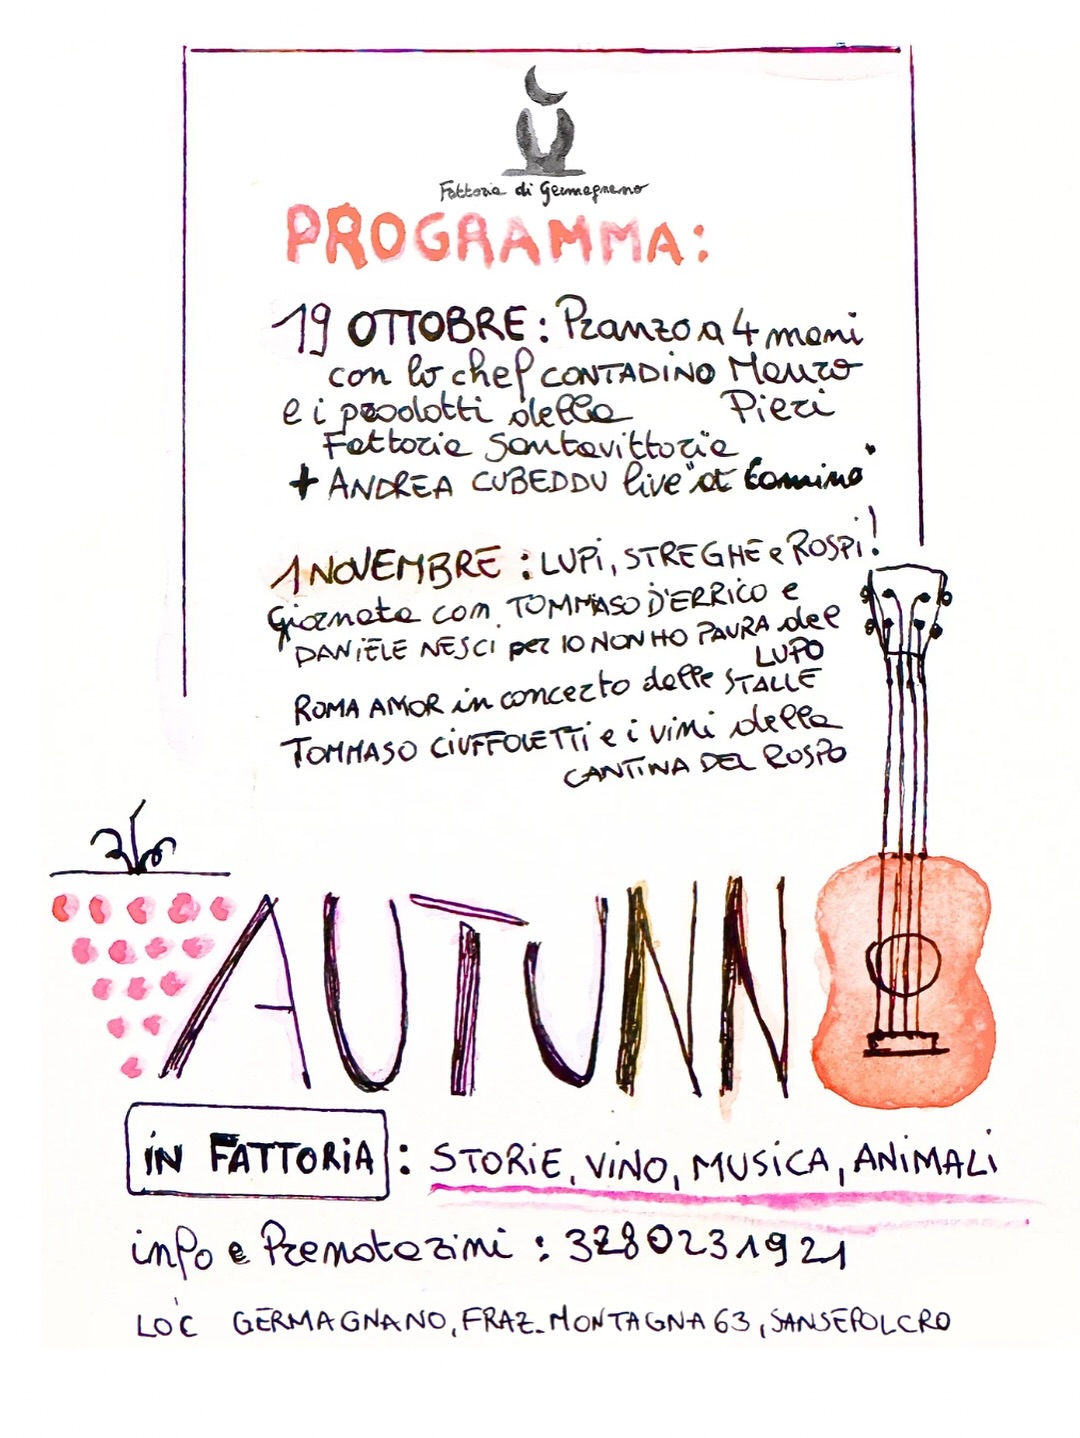 Fattoria di Germagnano
PROGRAMMA:
19 OTTOBRE: Pranzo a 4 mani
con lo chef CONTADINO Mauro
e i prodotti della Pieri
Fattoria Santavittoria
+ ANDREA CUBEDDU live "at camino"
1 NOVEMBRE: LUPI, STREGHE e ROSPI!
Giornata con TOMMASO D'ERRICO e
DANIELE NESCI per IO NON HO PAURA del
LUPO
ROMA AMOR in concerto dalle STALLE
TOMMASO CIUFFOLETTI e i vini della
CANTINA DEL ROSPO
AUTUNN
IN FATTORIA : STORIE, VINO, MUSICA, ANIMALI
info e Prenotazini : 3280231921
LOC GERMAGNANO, FRAZ. MONTAGNA 63, SANSEPOLCRO